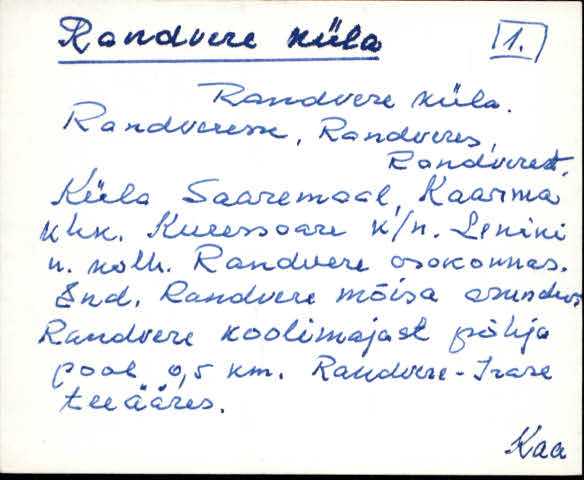 Randvere küla
1.
Randvere küla.
Randveresse, Randveres,
Randverest.
Küla Saaremaal, Kaarma
khk. Kuressaare k/n. Lenini
n. kolh. Randvere osakonnas.
End. Randvere mõisa asundus
Randvere koolimajast põhja
pool 0,5 km. Randvere-Irase
tee ääres.
Kaa